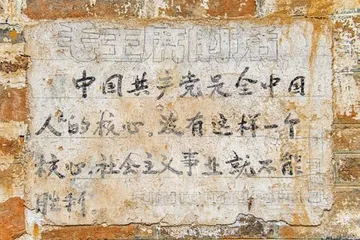 毛主席的话
中国共产党是全中国
人的核心。没有这样一个
核心，社会主义事业就不能
胜利。